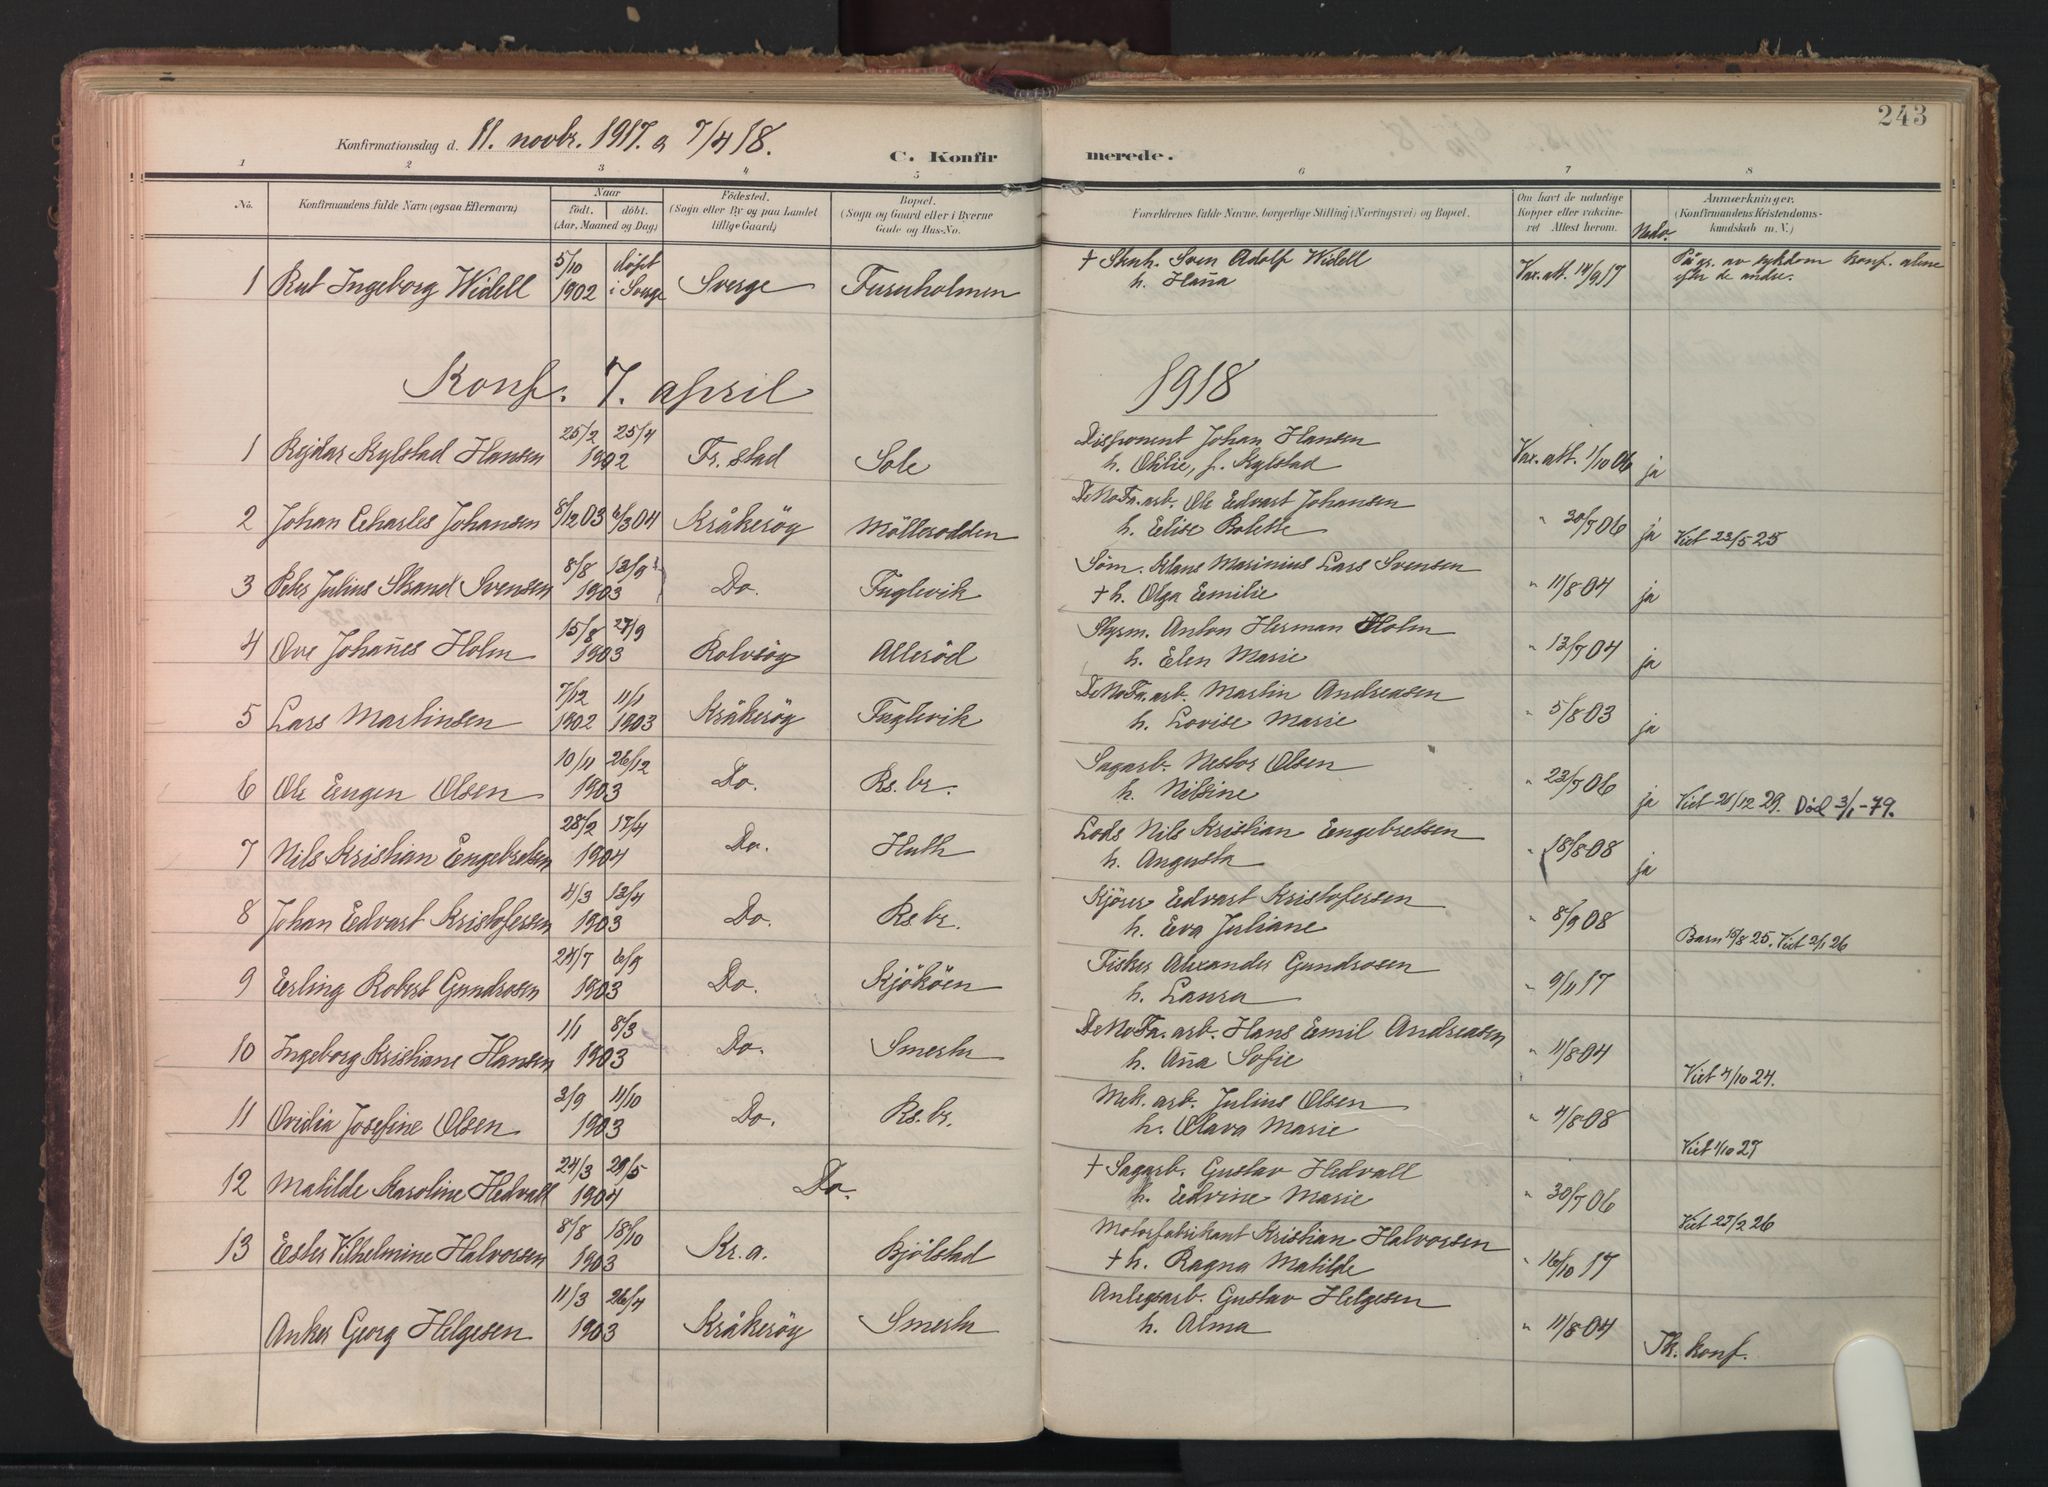 243
Konfirmationsdag d. 11. novbr. 1917. o 7/4 18.
C. Konfir merede.
1 2 3 4 5 6 7 8
No.
Konfirmandens fulde Navn (ogsaa Efternavn)
Naar
födt. döbt.
(Aar, Maaned og Dag)
Födested.
(Sogn eller By og paa Landet tillige Gaard)
Bopæl.
(Sogn og Gaard eller i Byerne Gade og Hus-No.
Forældrenes fulde Navne, borgerlige Stilling (Næringsvei) og Bopæl.
Om havt de naturlige Kopper eller vakcineret Attest herom.
Anmærkninger.
(Konfirmandens Kristendomskundskab m. V.)
1 Rut Ingeborg Widell 5/10 1902 döpt i Sverge Sverge Furuholmen † Stenh. Sven Adolf Widell
h. Han̄a Vax. att. 14/9 17 På gr. av sykdom konf. alene
efter de andre.
Konf. 7. april 1918
1 Rejdar Kylstad Hansen 25/2 25/4 1902 Fr.stad Sole Disponent Johan Hansen
h. Otilie, f. Kylstad Vax. att. 1/10 06 ja
2 Johan Charles Johansen 8/12 03 6/3 04 Kråkeröy Mölleodden DeNoFa. arb. Ole Edvart Johansen
h. Elise Bolette " 30/7 06 ja Viet 23/5 25
3 Peter Julius Strand Svensen 8/8 13/9 1903 Do. Fuglevik Söm. Klaus Marinius Lars Svensen
† h. Olga Emilie " 11/8 04 ja
4 Ove Johan̄es Holm 15/8 27/9 1903 Rolvsöy Alleröd Styrm. Anton Herman Holm
h. Elen Marie " 13/7 04 ja
5 Lars Martinsen 7/12 1902 11/1 1903 Kråkeröy Fuglevik DeNoFa. arb. Martin Andreasen
h. Lovise Marie " 5/8 03 ja
6 Ole Eugen Olsen 10/11 26/12 1903 Do. Rs. br. Sagarb. Nestor Olsen
h. Nilsine " 23/7 06 ja Viet 21/12 29. Död 3/1-79.
7 Nils Kristian Engebretsen 28/2 17/4 1904 Do. Huth Lods Nils Kristian Engebretsen
h. Augusta " 18/8 08 ja
8 Johan Edvart Kristofersen 4/3 13/4 1903 Do. Rs. br. Kjörer Edvart Kristofersen
h. Eva Juliane " 8/9 08 Barn 15/8 25. Viet 2/1 26
9 Erling Robert Gundrosen 24/7 6/9 1903 Do. Kjököen Fisker Alexander Gundrosen
h. Laura " 9/11 17
10 Ingeborg Kristiane Hansen 1/1 8/3 1903 Do. Smertu DeNoFa. arb. Hans Emil Andreasen
h. An̄a Sofie " 11/8 04 Viet 4/10 24.
11 Ovidia Josefine Olsen 3/9 11/10 1903 Do. Rs. br. Mek. arb. Julius Olsen
h. Olava Marie " 4/8 08 Viet 1/10 27
12 Matilde Karoline Hedvall 24/3 29/5 1904 Do. † Sagarb. Gustav Hedvall
h. Edvine Marie " 30/7 06 Viet 27/2 26
13 Ester Vilhelmine Halvorsen 8/8 18/10 1903 Kr.a. Bjölstad Motorfabrikant Kristian Halvorsen
† h. Ragna Matilde " 16/10 17
Anker Georg Helgesen 11/3 26/4 1903 Kråkeröy Smertu Anlegsarb. Gustav Helgesen
h. Alma " 11/8 04 Tk. konf.